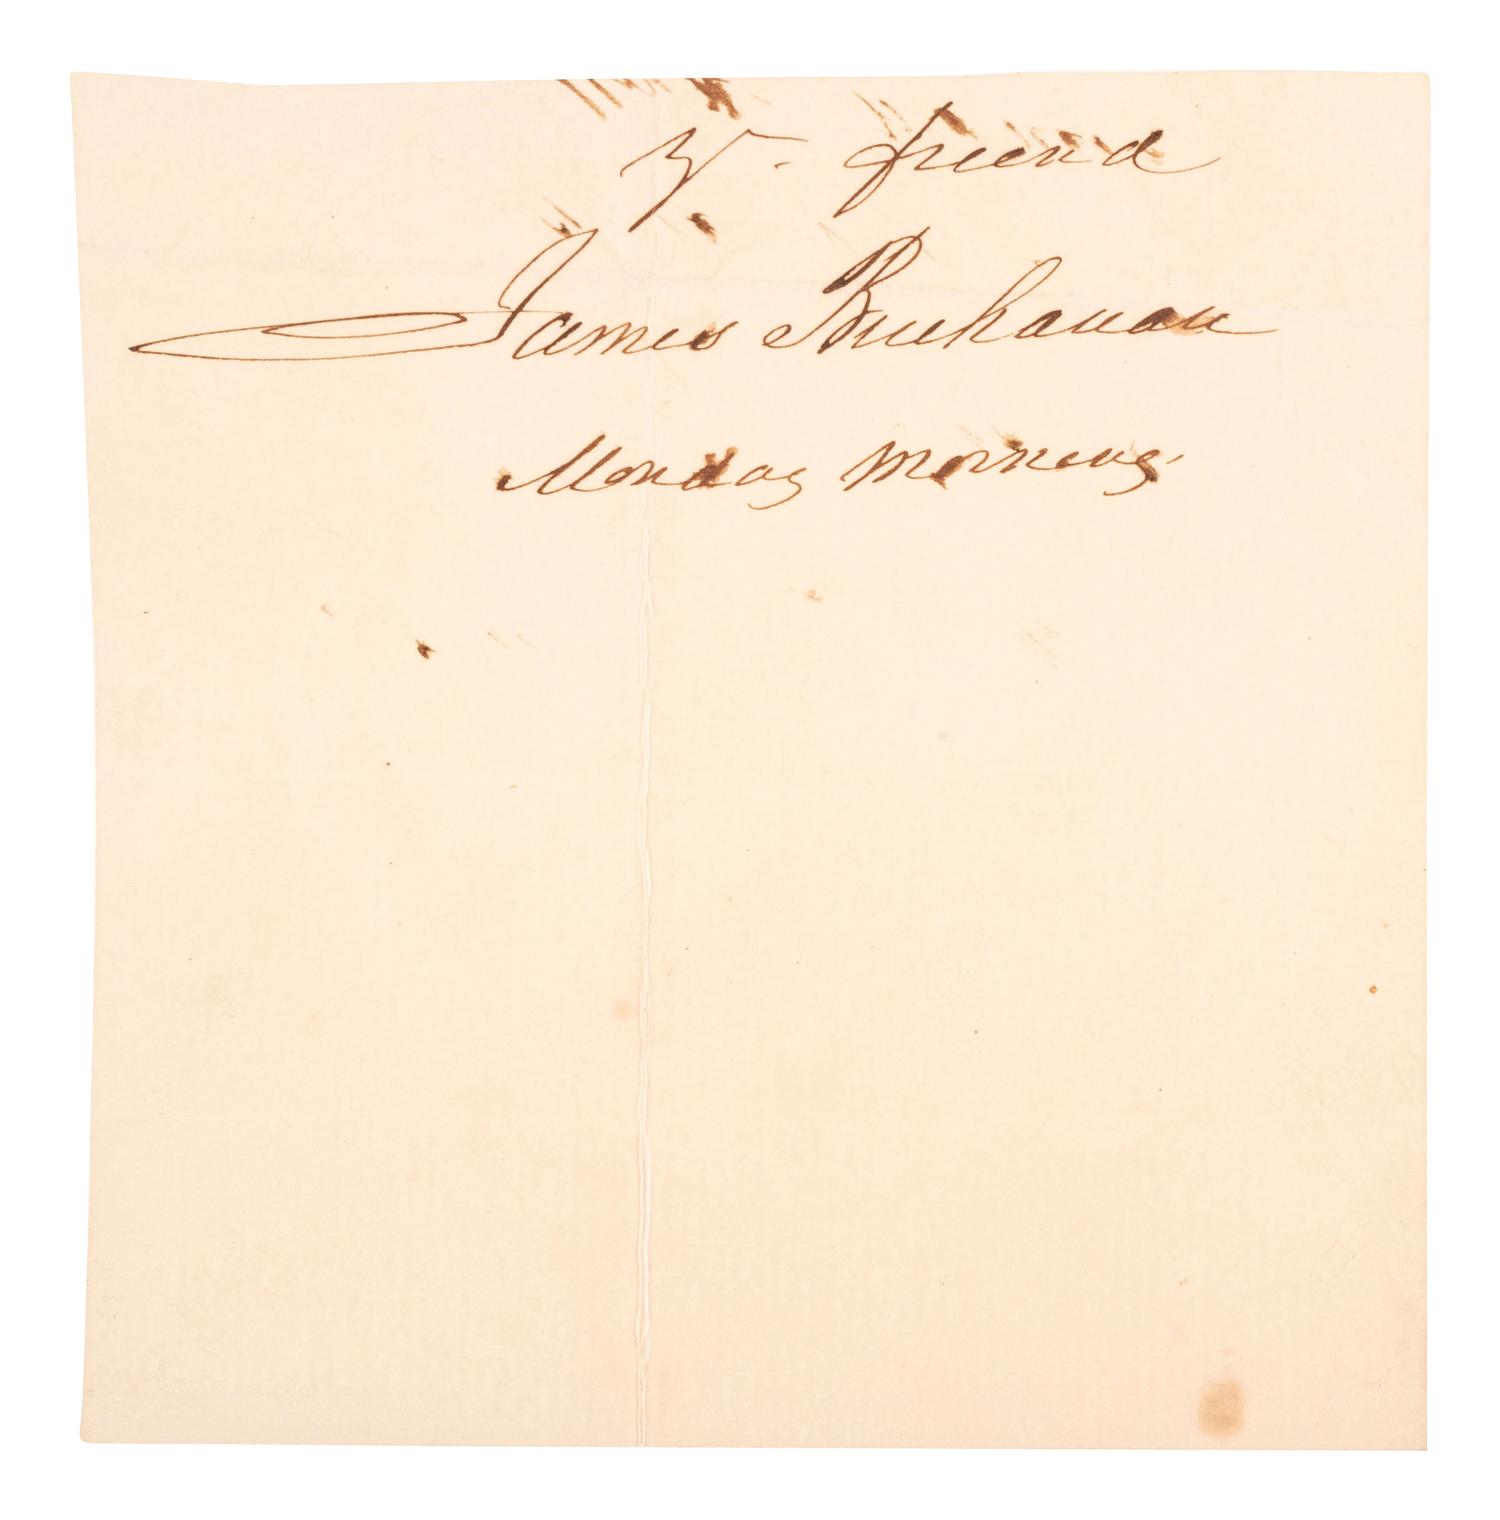 Yr. friend
James Buchanan
Monday morning